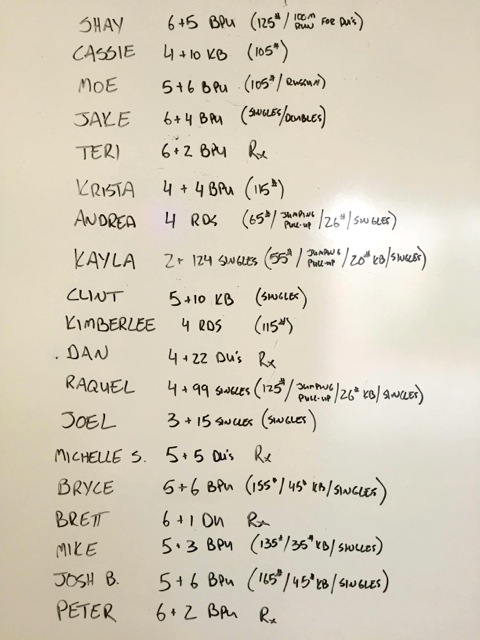 SHAY 6+5 BPU (125#/100M RUN FOR DU's)
CASSIE 4+10 KB (105#)
MOE 5+6 BPU (105#/RUSSIAN)
JAKE 6+4 BPU (SINGLES/DOUBLES)
TERI 6+2 BPU Rx
KRISTA 4+4BPU (115#)
ANDREA 4 RDS (65#/JUMPING PULL-UP/26#/SINGLES)
KAYLA 2+ 124 SINGLES (55#/JUMPING PULL-UP/20# KB/SINGLES)
CLINT 5+10 KB (SINGLES)
KIMBERLEE 4 RDS (115#)
. DAN 4+22 DU's Rx
RAQUEL 4+99 SINGLES (125#/JUMPING PULL-UP/26# KB/SINGLES)
JOEL 3+15 SINGLES (SINGLES)
MICHELLE S. 5+5 DU's Rx
BRYCE 5+6 BPU (155#/45# KB/SINGLES)
BRETT 6+1 DU Rx
MIKE 5+3 BPU (135#/35# KB/SINGLES)
JOSH B. 5+6 BPU (165#/45# KB/SINGLES)
PETER 6+2 BPU Rx